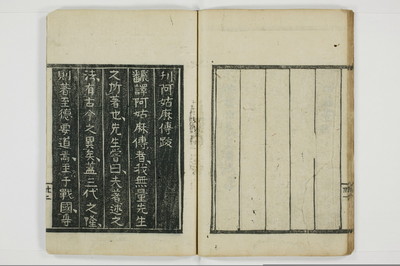 刊阿姑麻傳跋
飜譯阿姑麻傳者、我無量先生
之所著也、先生嘗曰、夫著述之
法、有古今之異矣、蓋三代之隆、
則著至德要道焉、至于戰國專